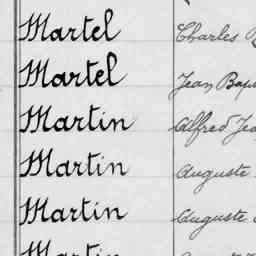 Martel Charles
Martel Jean
Martin Alfred
Martin Auguste
Martin Auguste
Martin